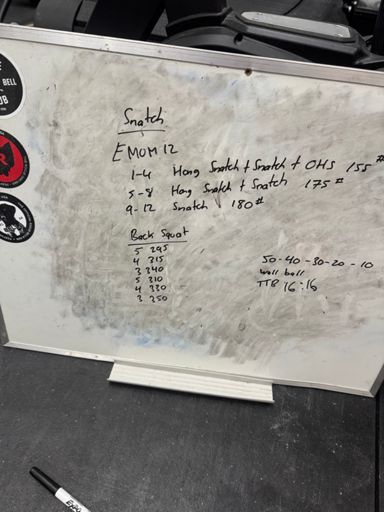 Snatch
EMOM 12
1-4 Hang Snatch + Snatch + OHS 155#
5-8 Hang Snatch + Snatch 175#
9-12 Snatch 180#
Back Squat
5 295
4 315
3 340
5 310
4 330
3 350
50-40-30-20-10
wall ball
TTB 16:16
BELL
R
EXPO